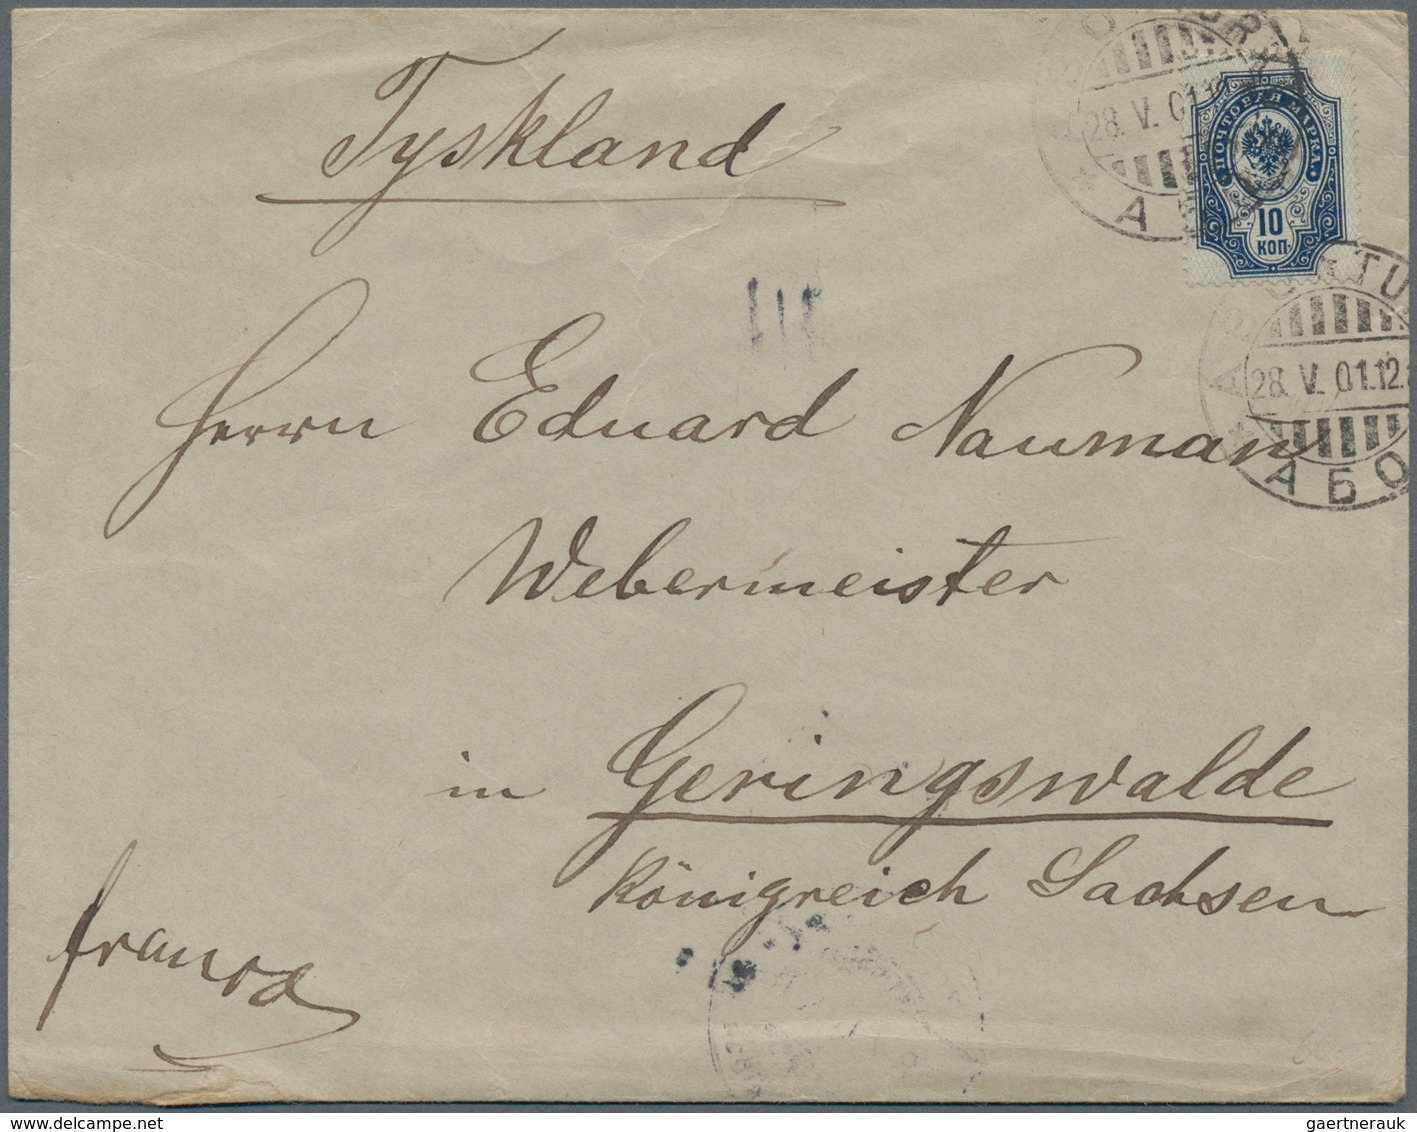 Tyskland
28. V. 01.12
ПОЧТОВАЯ МАРКА
10
КОП.
Herrn Eduard Nauman
28. V. 01.12.
АБО
Webermeister
in Geringswalde
Königreich Sachsen
franco
gaertnerauk@hotmail.com